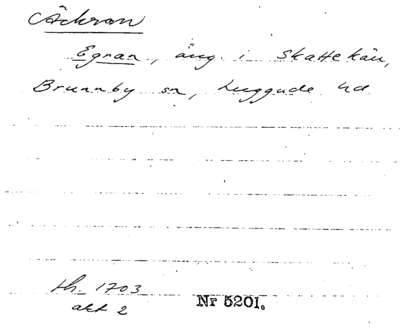 Äckran
Egnan, äng i Skattekärr,
Brunnby sn, Luggude hd
th. 1703
akt 2
Nr 5201.